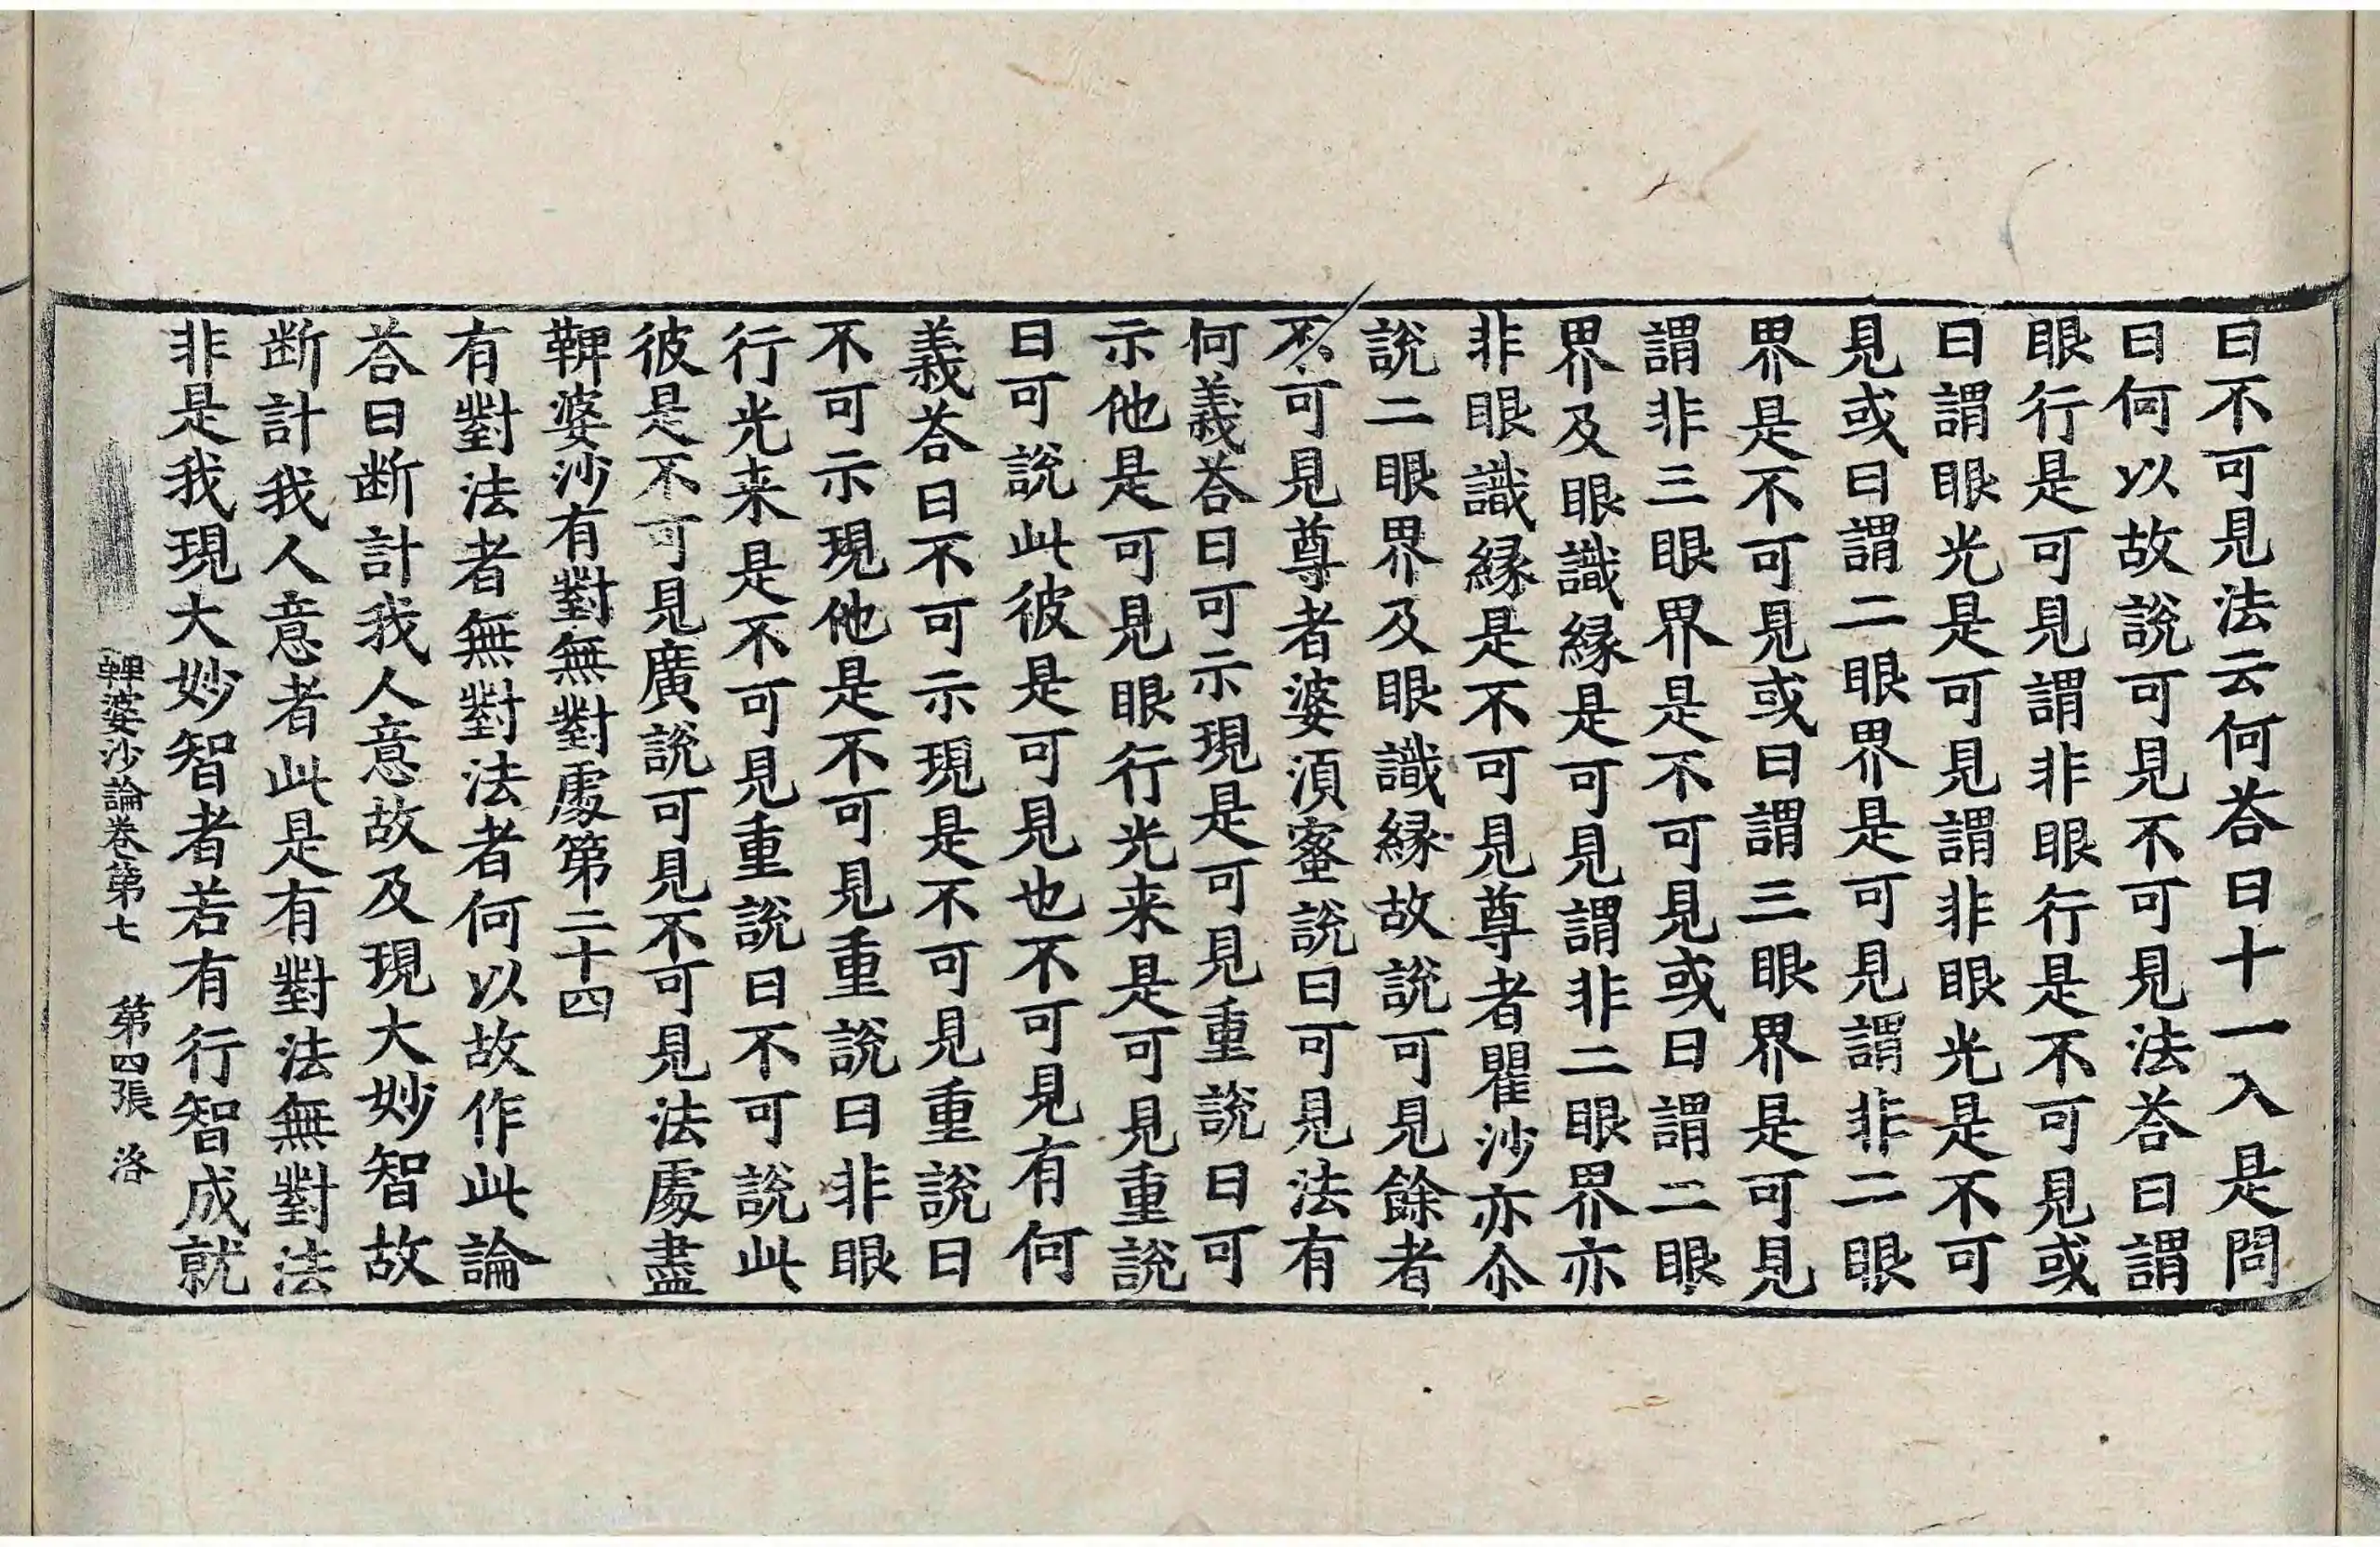 曰不可見法云何荅曰十一入是問
曰何以故說可見不可見法荅曰謂
眼行是可見謂非眼行是不可見或
曰謂眼光是可見謂非眼光是不可
見或曰謂二眼界是可見謂非二眼
界是不可見或曰謂三眼界是可見
謂非三眼界是不可見或曰謂二眼
界及眼識縁是可見謂非二眼界亦
非眼識縁是不可見尊者瞿沙亦尒
說二眼界及眼識縁故說可見餘者
不可見尊者婆湏蜜說曰可見法有
何義荅曰可示現是可見重說曰可
示他是可見眼行光来是可見重說
曰可說此彼是可見也不可見有何
義荅曰不可示現是不可見重說曰
不可示現他是不可見重說曰非眼
行光来是不可見重說曰不可說此
彼是不可見廣說可見不可見法處盡
鞞婆沙有對無對處第二十四
有對法者無對法者何以故作此論
荅曰断計我人意故及現大妙智故
断計我人意者此是有對法無對法
非是我現大妙智者若有行智成就
鞞婆沙論卷第七　第四張　洛